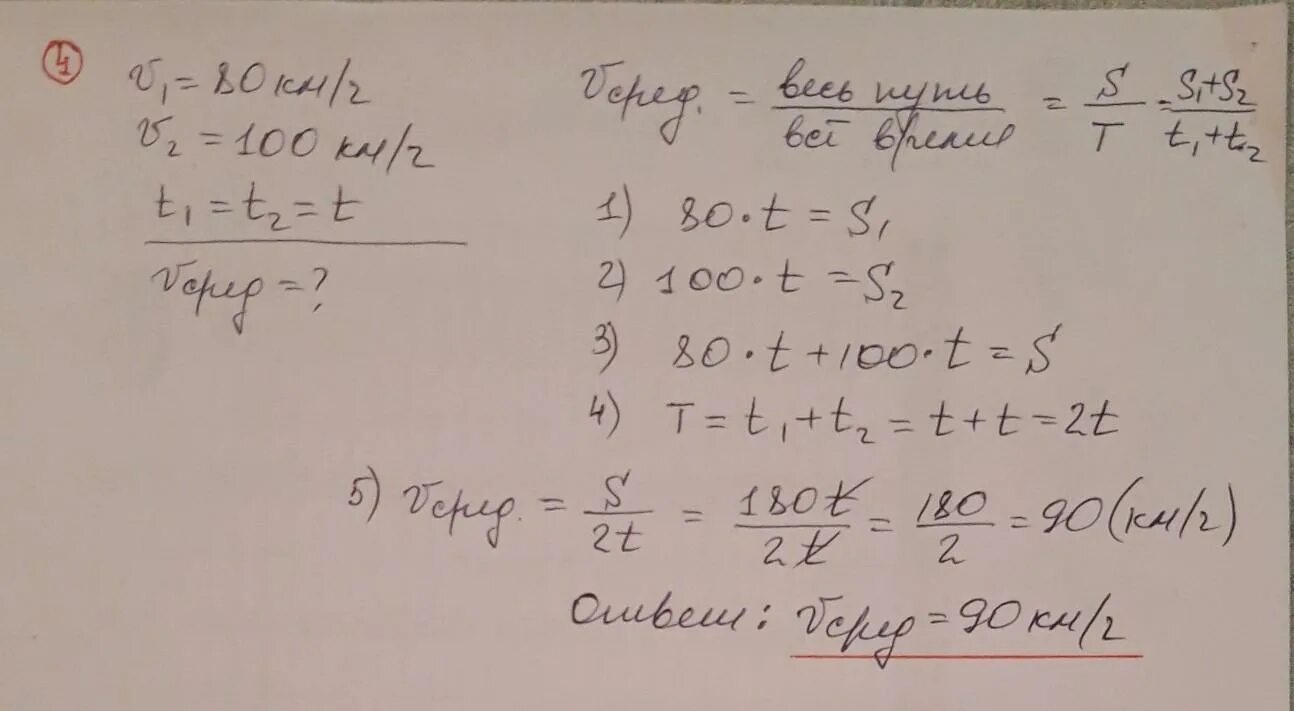 4
v₁ = 80 км/г
v₂ = 100 км/г
t₁ = t₂ = t
vсред = ?
vсред. = весь путь / всё время = S / T = S₁+S₂ / t₁+t₂
1) 80·t = S₁
2) 100·t = S₂
3) 80·t + 100·t = S
4) T = t₁ + t₂ = t + t = 2t
5) vсред. = S / 2t = 180t / 2t = 180 / 2 = 90 (км/г)
Ответ: vсред = 90 км/г